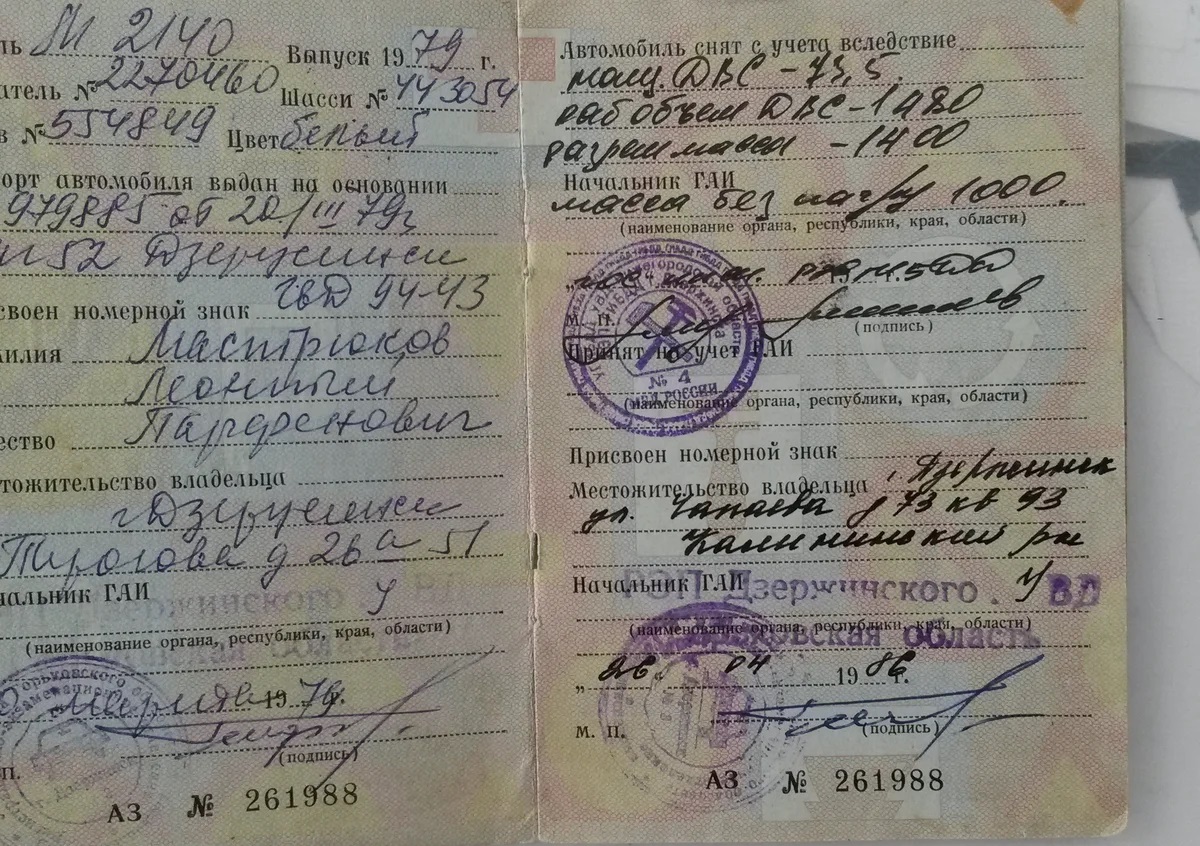 ль М 2140 Выпуск 1979 г.
атель № 2270460 Шасси № 443054
в № 554849 Цвет белый
орт автомобиля выдан на основании
979885 от 20/III 79г
52 Дзержинск
своен номерной знак 94-43
милия Мастрюков
Леонтий
ество Парфенович
тожительство владельца
г Дзержинск
д 26а 51
чальник ГАИ У
(наименование органа, республики, края, области)
1979г.
(подпись)
П.
АЗ № 261988
Автомобиль снят с учета вследствие
мощ. ДВС - 73,5.
раб объем ДВС - 1480
разреш масса - 1400
Начальник ГАИ
масса без нагр 1000.
(наименование органа, республики, края, области)
М. П.
(подпись)
№ 4
МВД РОССИИ
Принят на учет ГАИ
(наименование органа, республики, края, области)
Присвоен номерной знак
Местожительство владельца г Дзержинск
ул. Чапаева д 73 кв 93
Калининский рн
Начальник ГАИ РЭП Дзержинского УВД
(наименование органа, республики, края, области)
Горьковская область
„ 26. 04 1986 г.
М. П.
(подпись)
АЗ № 261988